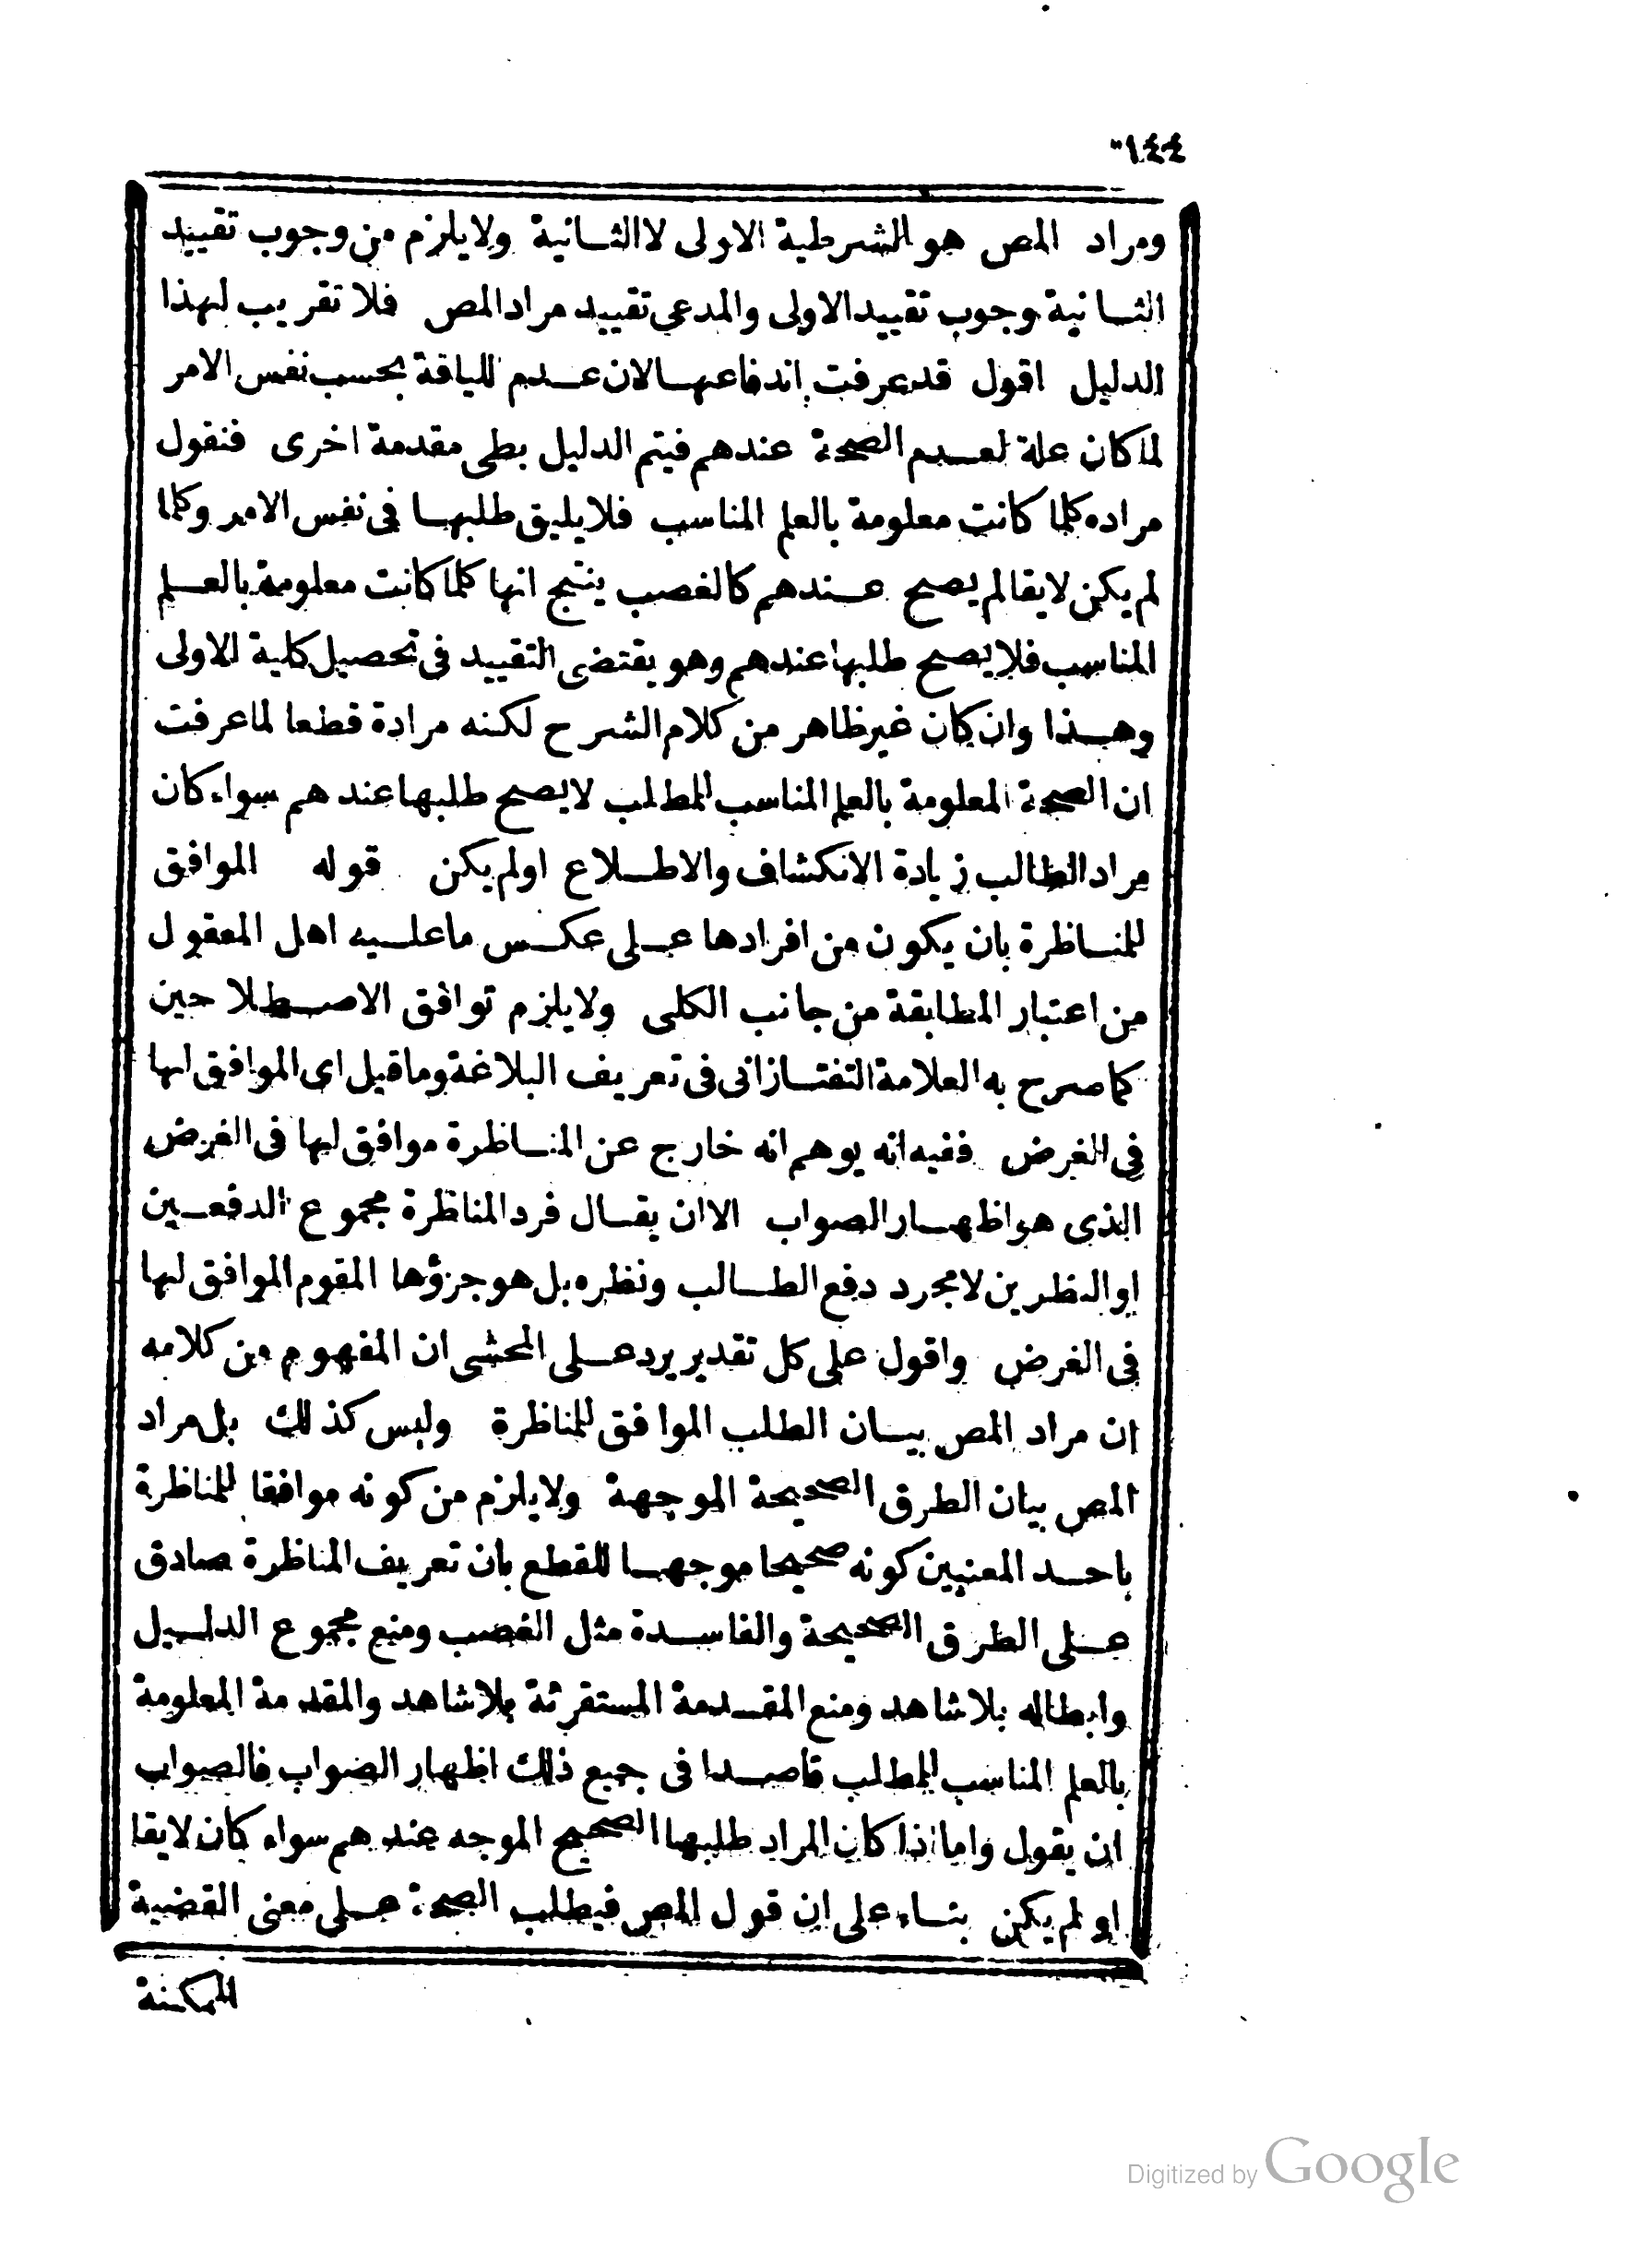 ١٤٤
ومراد المص هو الشرطية الاولى لا الثانية ولا يلزم من وجوب تقييد
الثانية وجوب تقييد الاولى والمدعى تقييد مراد المص فلا تقريب لهذا
الدليل اقول قد عرفت اندفاعها لان عدم اللياقة بحسب نفس الامر
لما كان علة لعدم الصحة عندهم فيتم الدليل بطى مقدمة اخرى فنقول
مراده كلما كانت معلومة بالعلم المناسب فلا يليق طلبها فى نفس الامر وكلما
لم يكن لايقا لم يصح عندهم كالغصب ينتج انها كلما كانت معلومة بالعلم
المناسب فلا يصح طلبها عندهم وهو يقتضى التقييد فى تحصيل كلية الاولى
وهذا وان كان غير ظاهر من كلام الشرح لكنه مرادة قطعا لما عرفت
ان الصحة المعلومة بالعلم المناسب للمطلب لا يصح طلبها عندهم سواء كان
مراد الطالب زيادة الانكشاف والاطلاع او لم يكن قوله الموافق
للمناظرة بان يكون من افرادها على عكس ما عليه اهل المعقول
من اعتبار المطابقة من جانب الكلى ولا يلزم توافق الاصطلاحين
كما صرح به العلامة التفتازانى فى تعريف البلاغة وما قيل اى الموافق لها
فى الغرض ففيه انه يوهم انه خارج عن المناظرة موافق لها فى الغرض
الذى هو اظهار الصواب الا ان يقال فرد المناظرة مجموع الدفعين
او النظرين لا مجرد دفع الطالب ونظره بل هو جزؤها المقوم الموافق لها
فى الغرض واقول على كل تقدير يرد على المحشى ان المفهوم من كلامه
ان مراد المص بيان الطلب الموافق للمناظرة وليس كذلك بل مراد
المص بيان الطرق الصحيحة الموجهة ولا يلزم من كونه موافقا للمناظرة
باحد المعنيين كونه صحيحا موجها للقطع بان تعريف المناظرة صادق
على الطرق الصحيحة والفاسدة مثل الغصب ومنع مجموع الدليل
وابطاله بلا شاهد ومنع المقدمة المستقرئة بلا شاهد والمقدمة المعلومة
بالعلم المناسب للمطلب قاصدا فى جميع ذلك اظهار الصواب فالصواب
ان يقول واما اذا كان المراد طلبها الصحيح الموجه عندهم سواء كان لايقا
او لم يكن بناء على ان قول المص فيطلب الصحة على معنى القضية
الممكنة
Digitized by Google